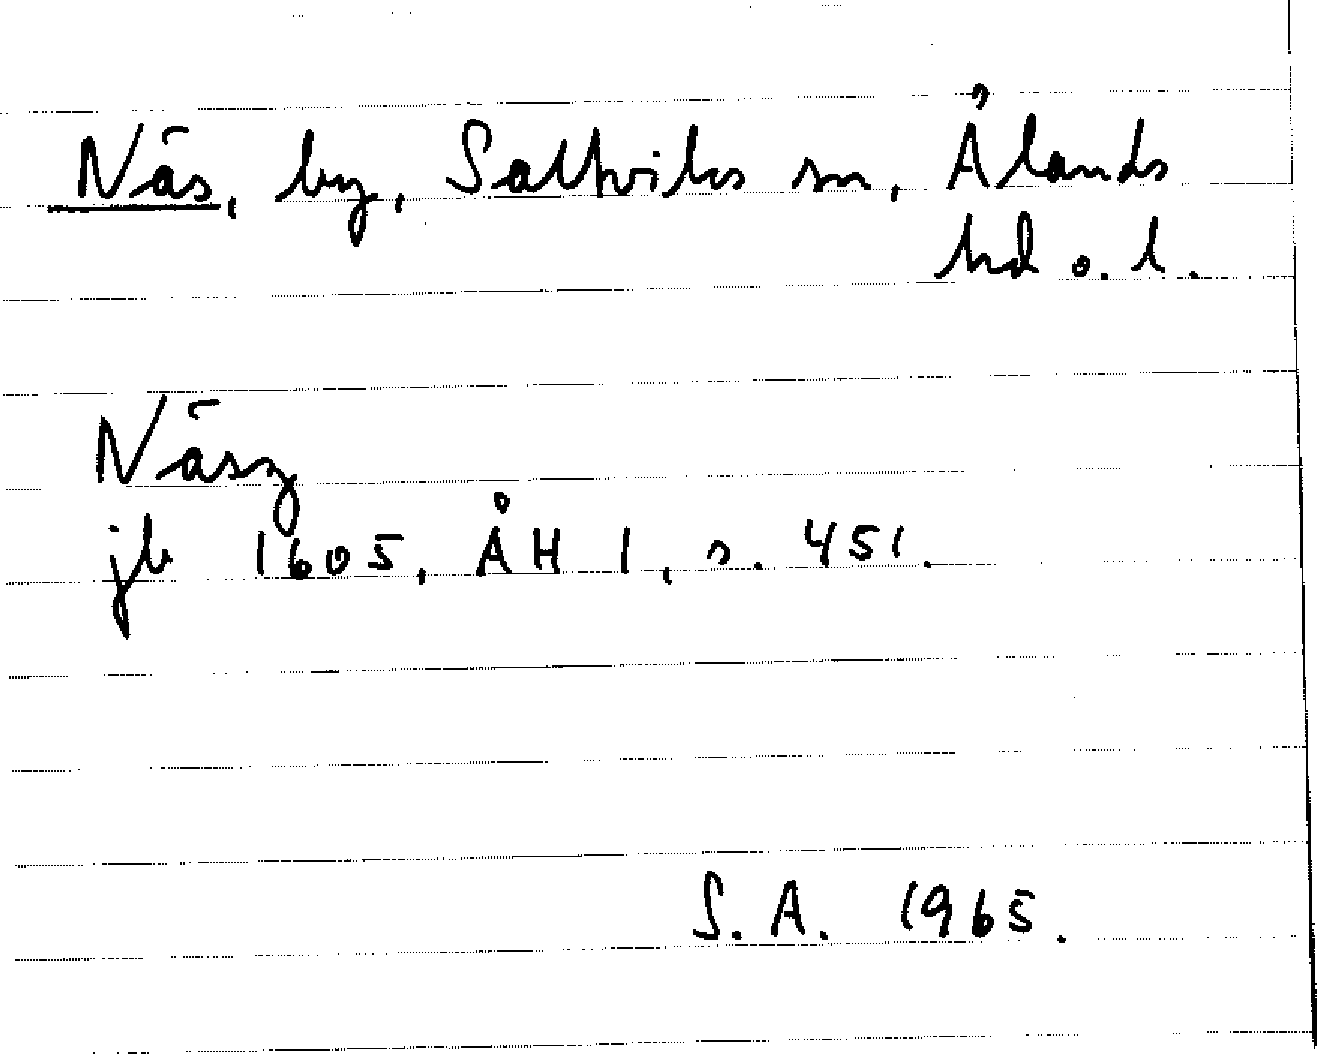 Näs, by, Saltviks sn, Ålands
hd o. l.
Näsz
jb 1605, ÅH 1, s. 451.
S. A. 1965.